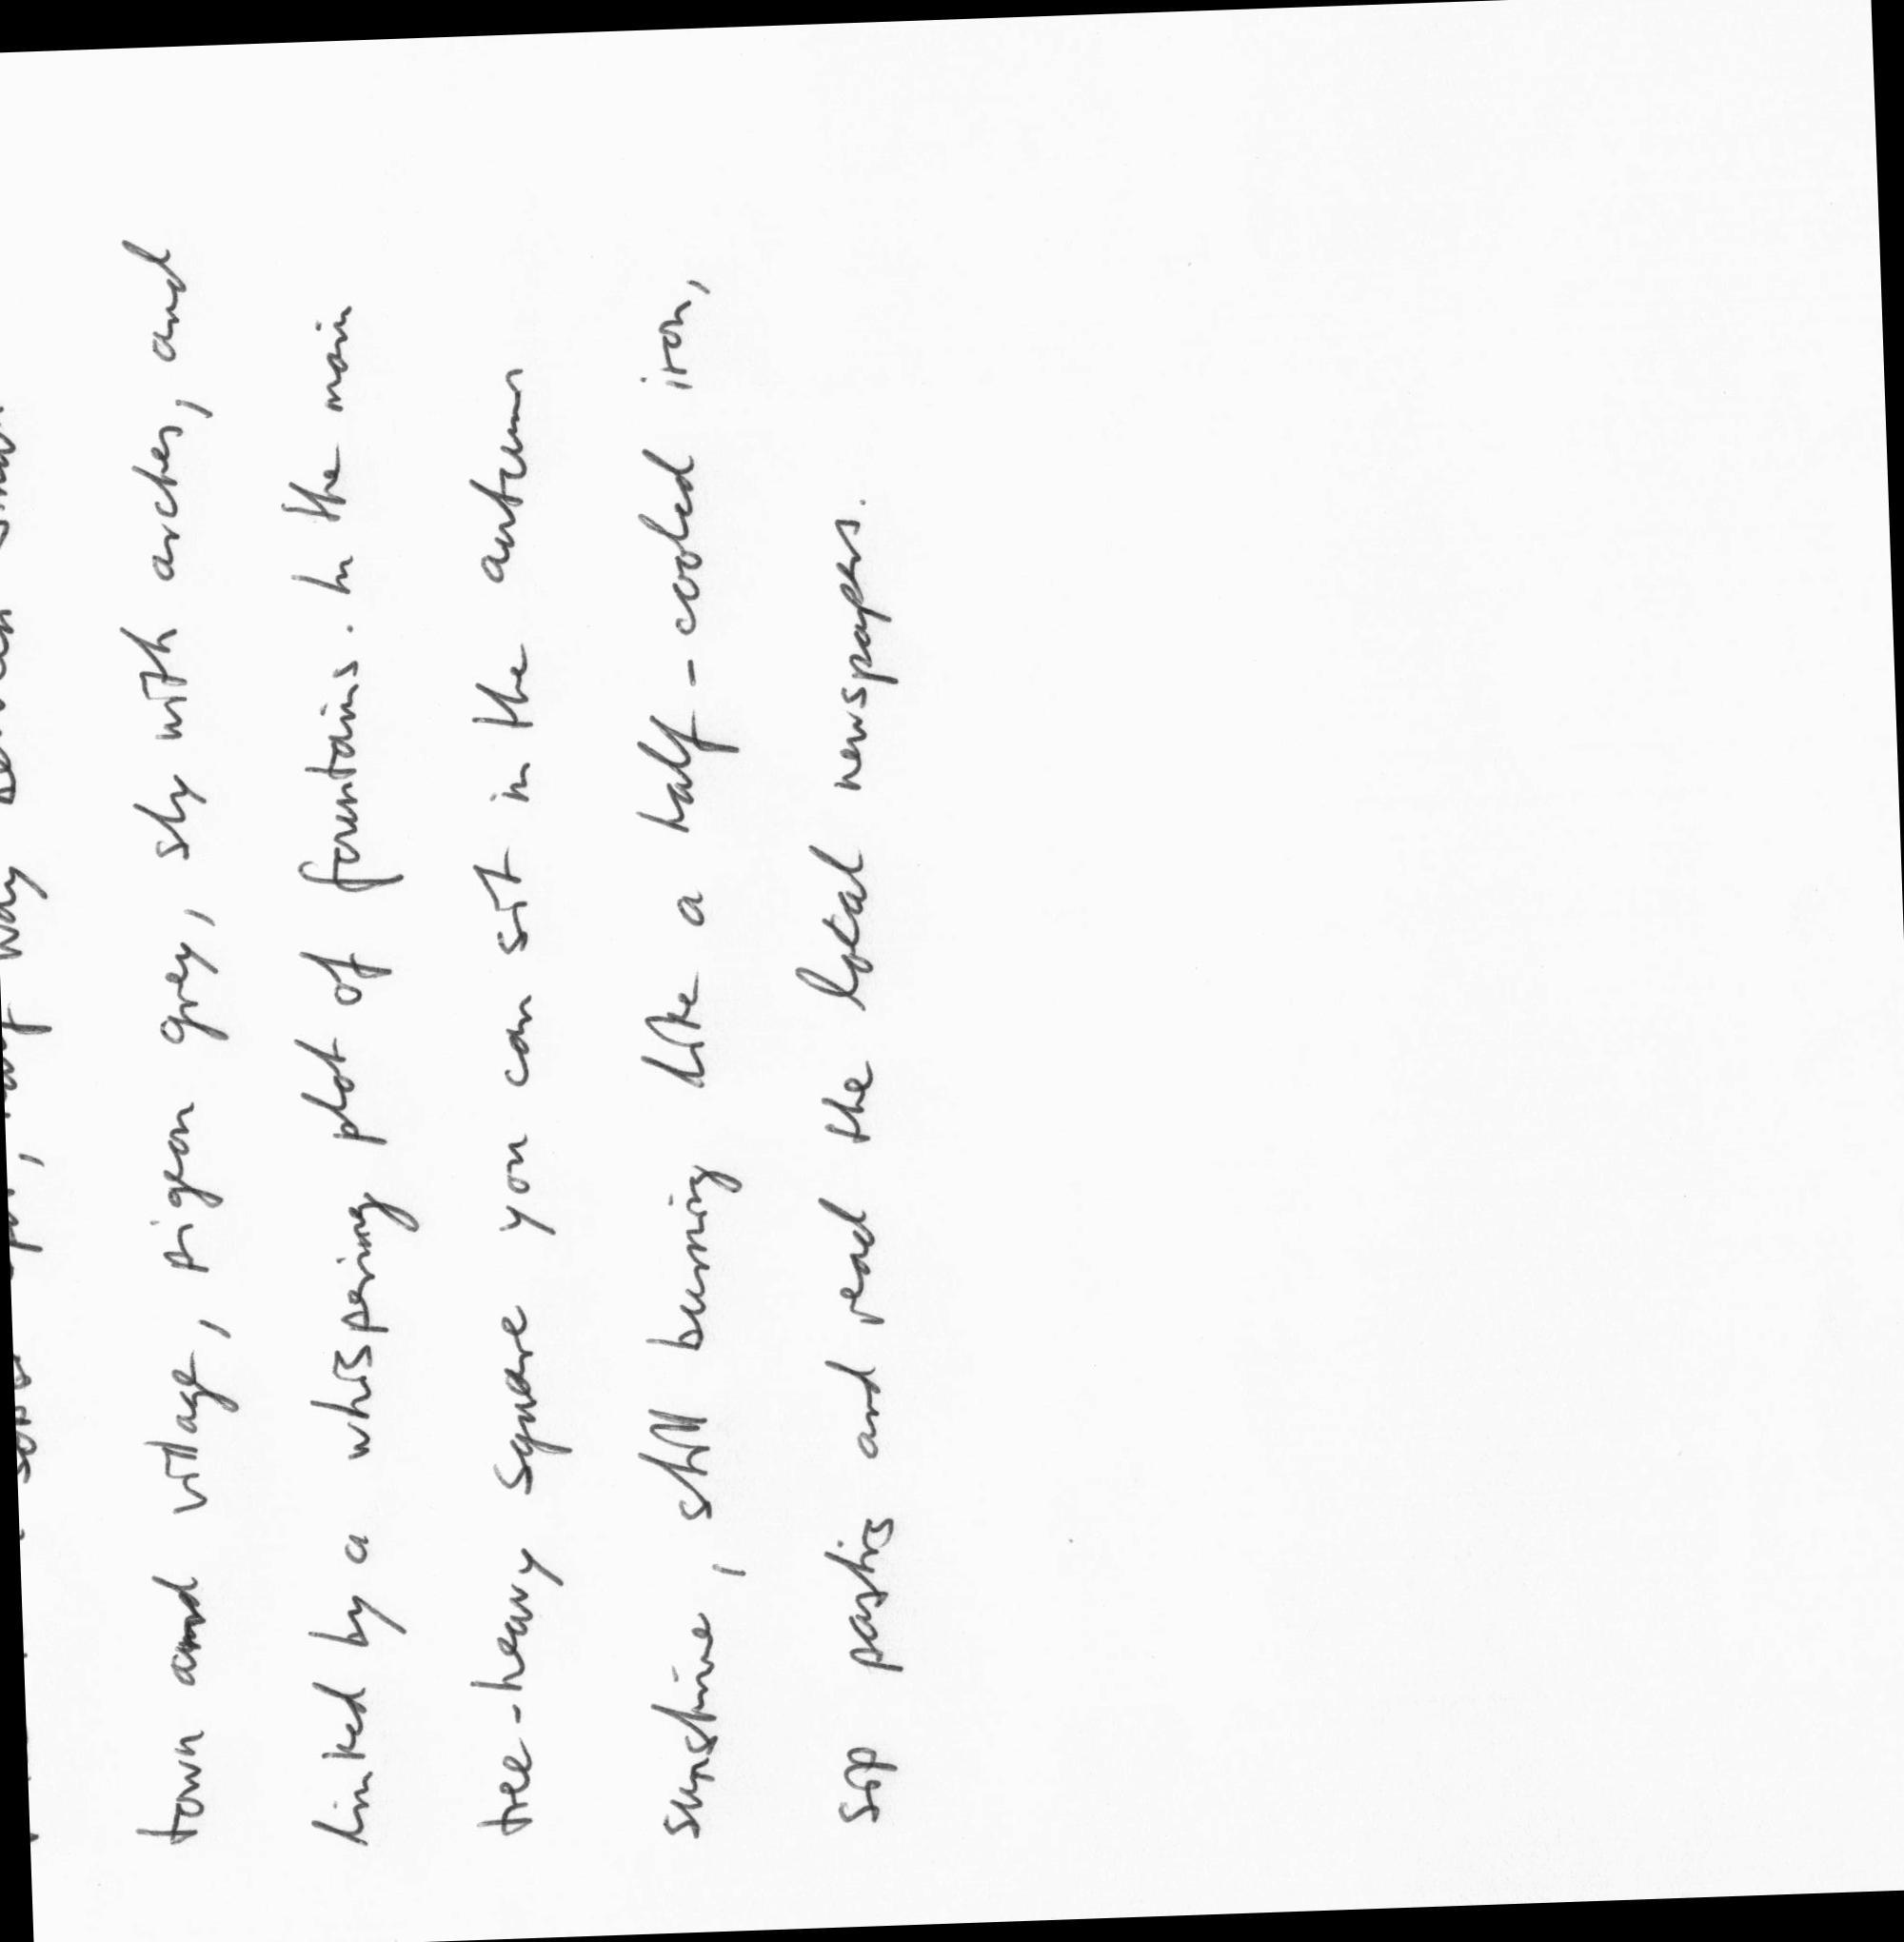 half way between small
town and village, pigeon grey, shy with arches, and
linked by a whispering plot of fountains. In the main
tree-heavy square you can sit in the autumn
sunshine, still burning like a half-cooled iron,
sip pastis and read the local newspapers.